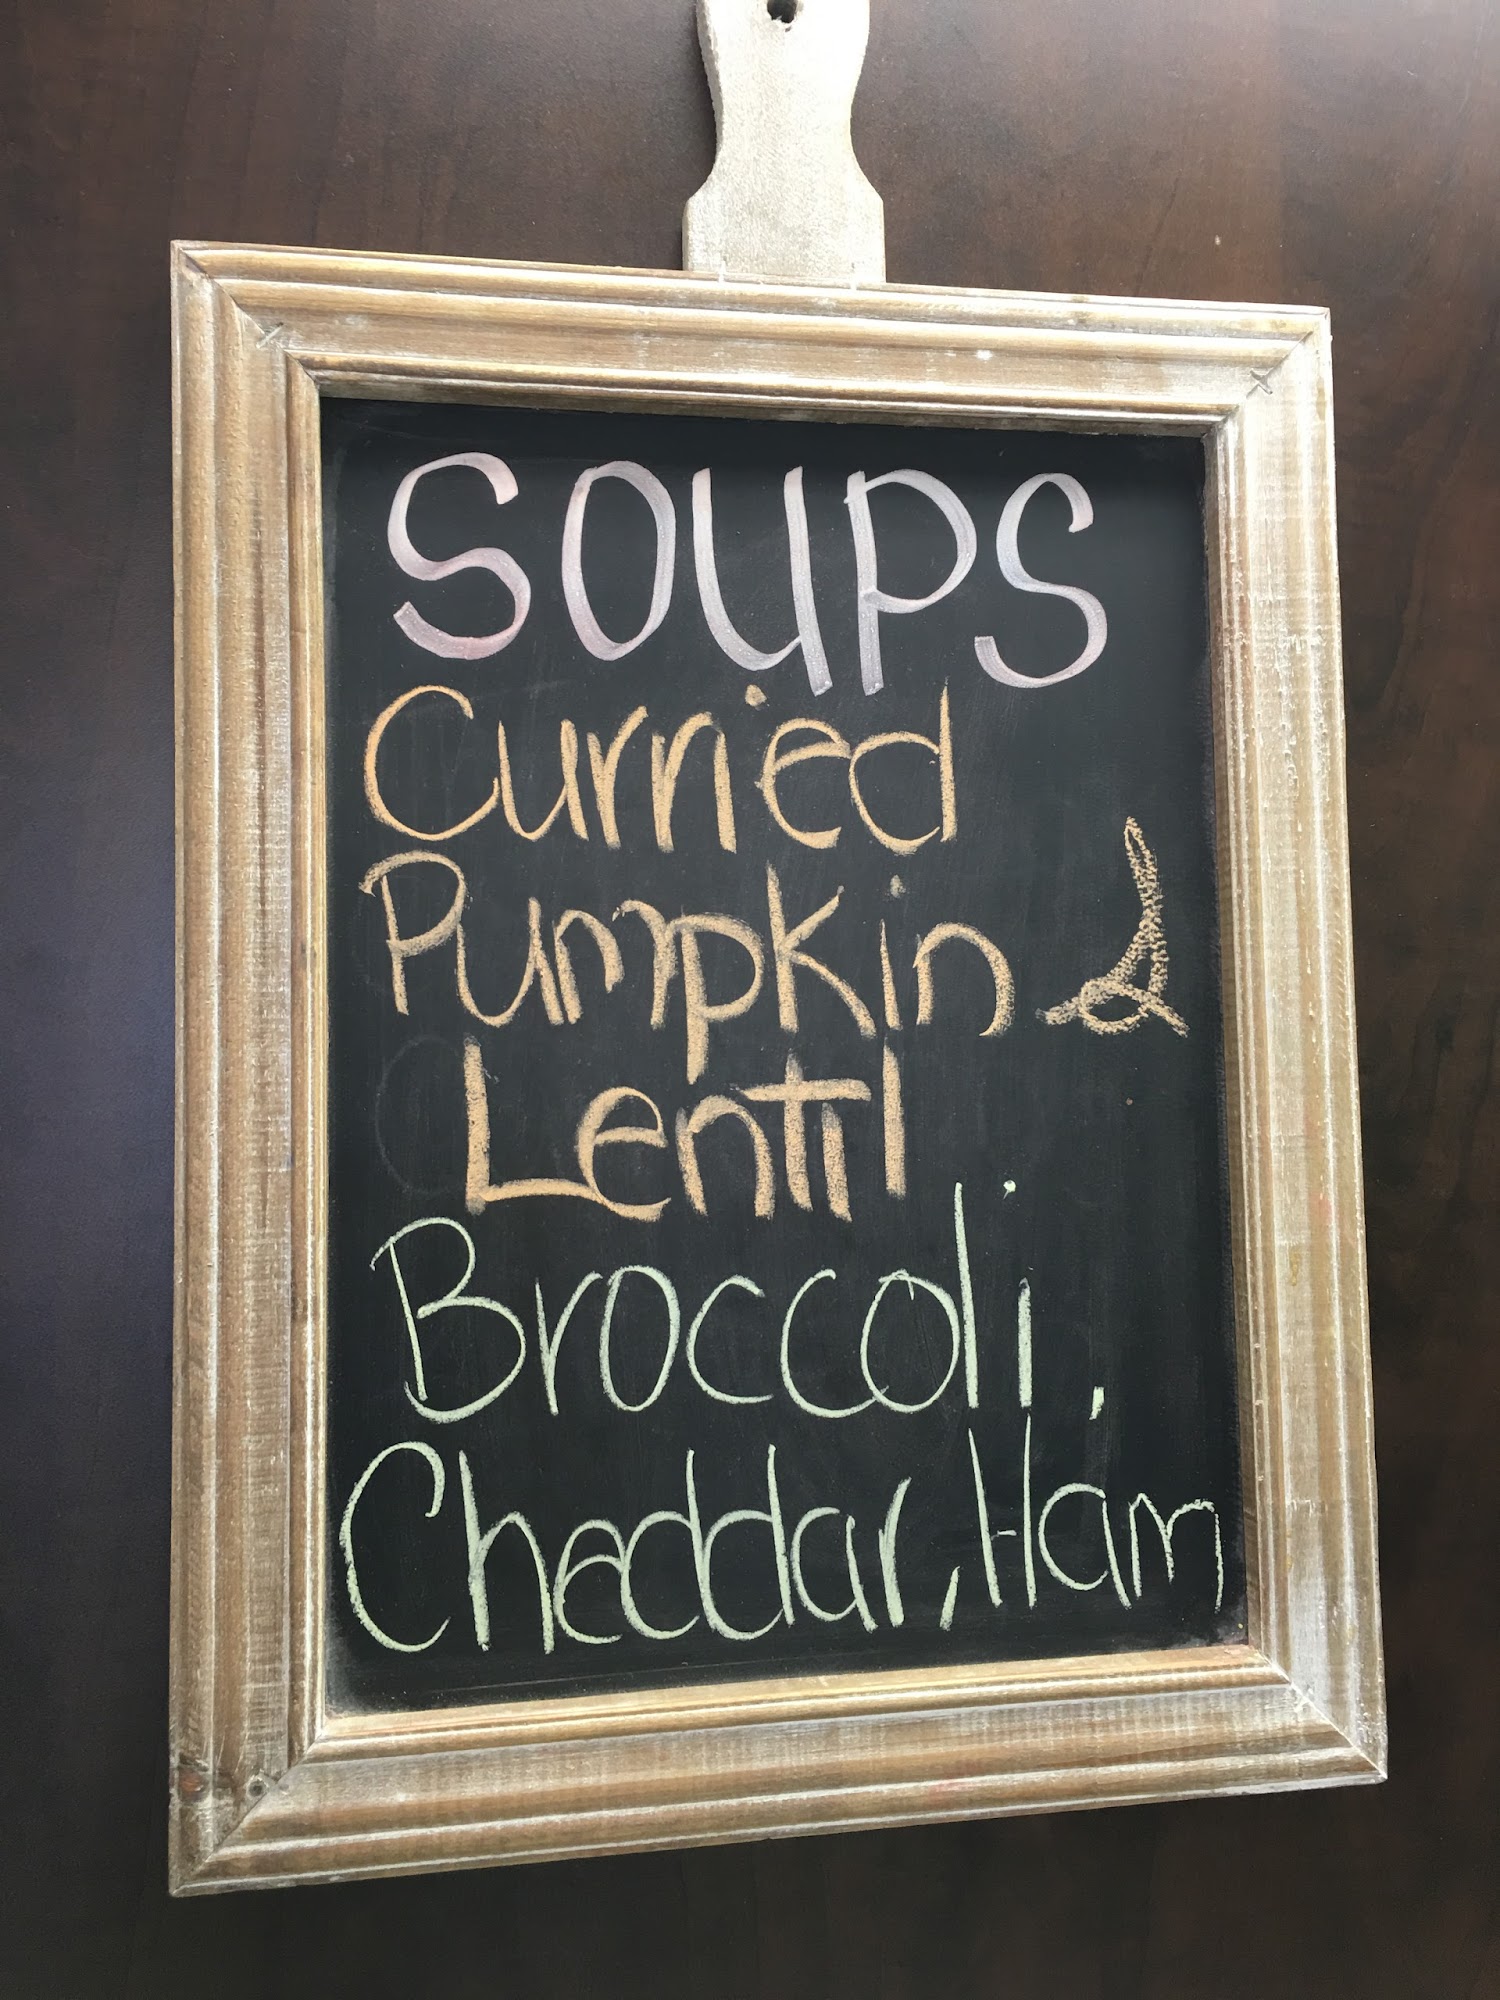 SOUPS
Curried
Pumpkin &
Lentil
Broccoli,
Cheddar, Ham